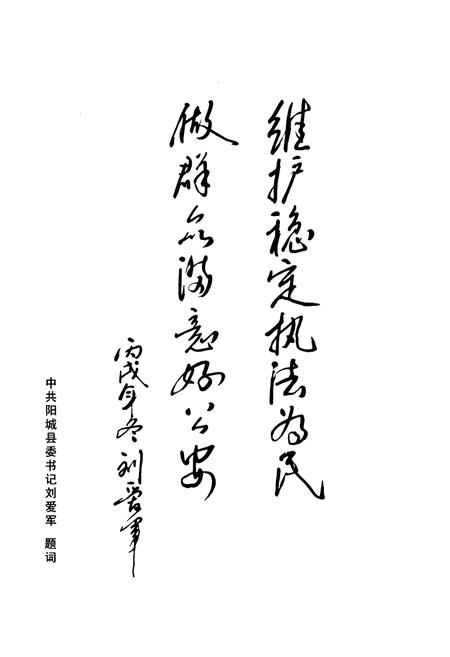 维护稳定执法为民
做群众满意好公安
丙戌年冬 刘爱军
中共阳城县委书记刘爱军 题词